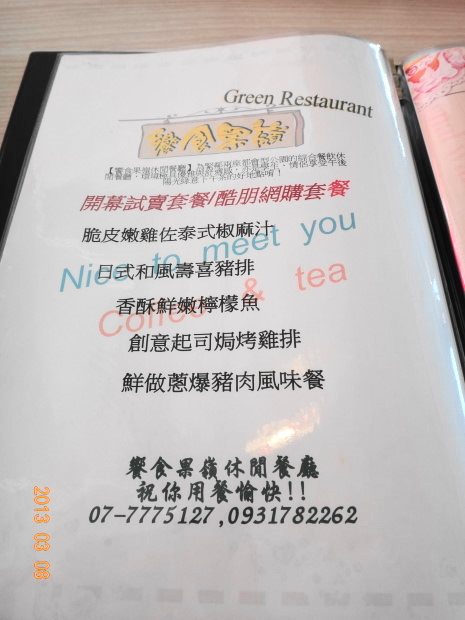 Green Restaurant
饗食果嶺
開幕試賣套餐/酷朋網購套餐
脆皮嫩雞佐泰式椒麻汁
Nice to meet you
日式和風壽喜豬排
Coffee & tea
香酥鮮嫩檸檬魚
創意起司焗烤雞排
鮮做蔥爆豬肉風味餐
饗食果嶺休閒餐廳
祝你用餐愉快!!
07-7775127,0931782262
2013 03 08